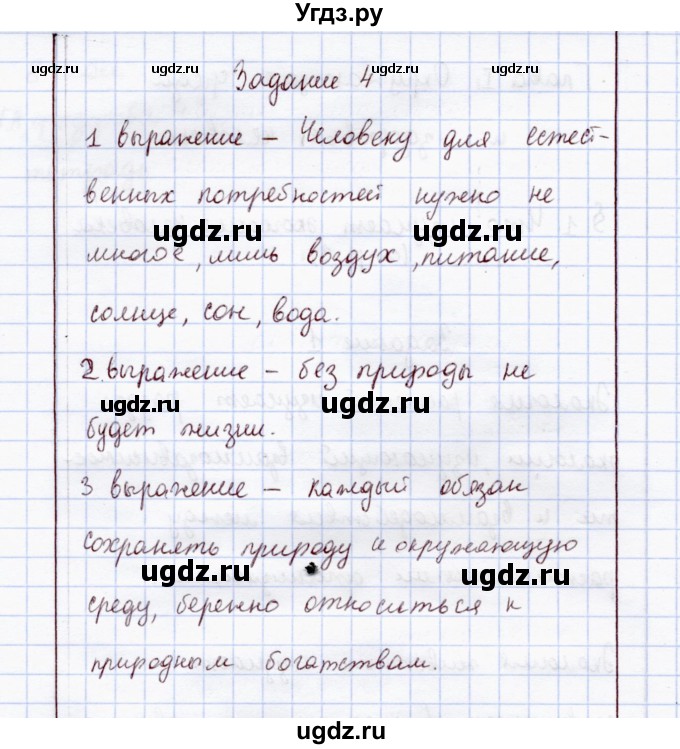 Угдз.ру
ugdz.ru ugdz.ru ugdz.ru ugdz.ru ugdz.ru
Задание 4
1 выражение – Человеку для естест-
венных потребностей нужно не
ugdz.ru ugdz.ru ugdz.ru
многое, лишь воздух, питание,
солнце, сон, вода.
2. выражение – без природы не
ugdz.ru ugdz.ru ugdz.ru
будет жизни.
3 выражение – каждый обязан
сохранять природу и окружающую
ugdz.ru ugdz.ru ugdz.ru
среду, бережно относиться к
природным богатствам.
ugdz.ru